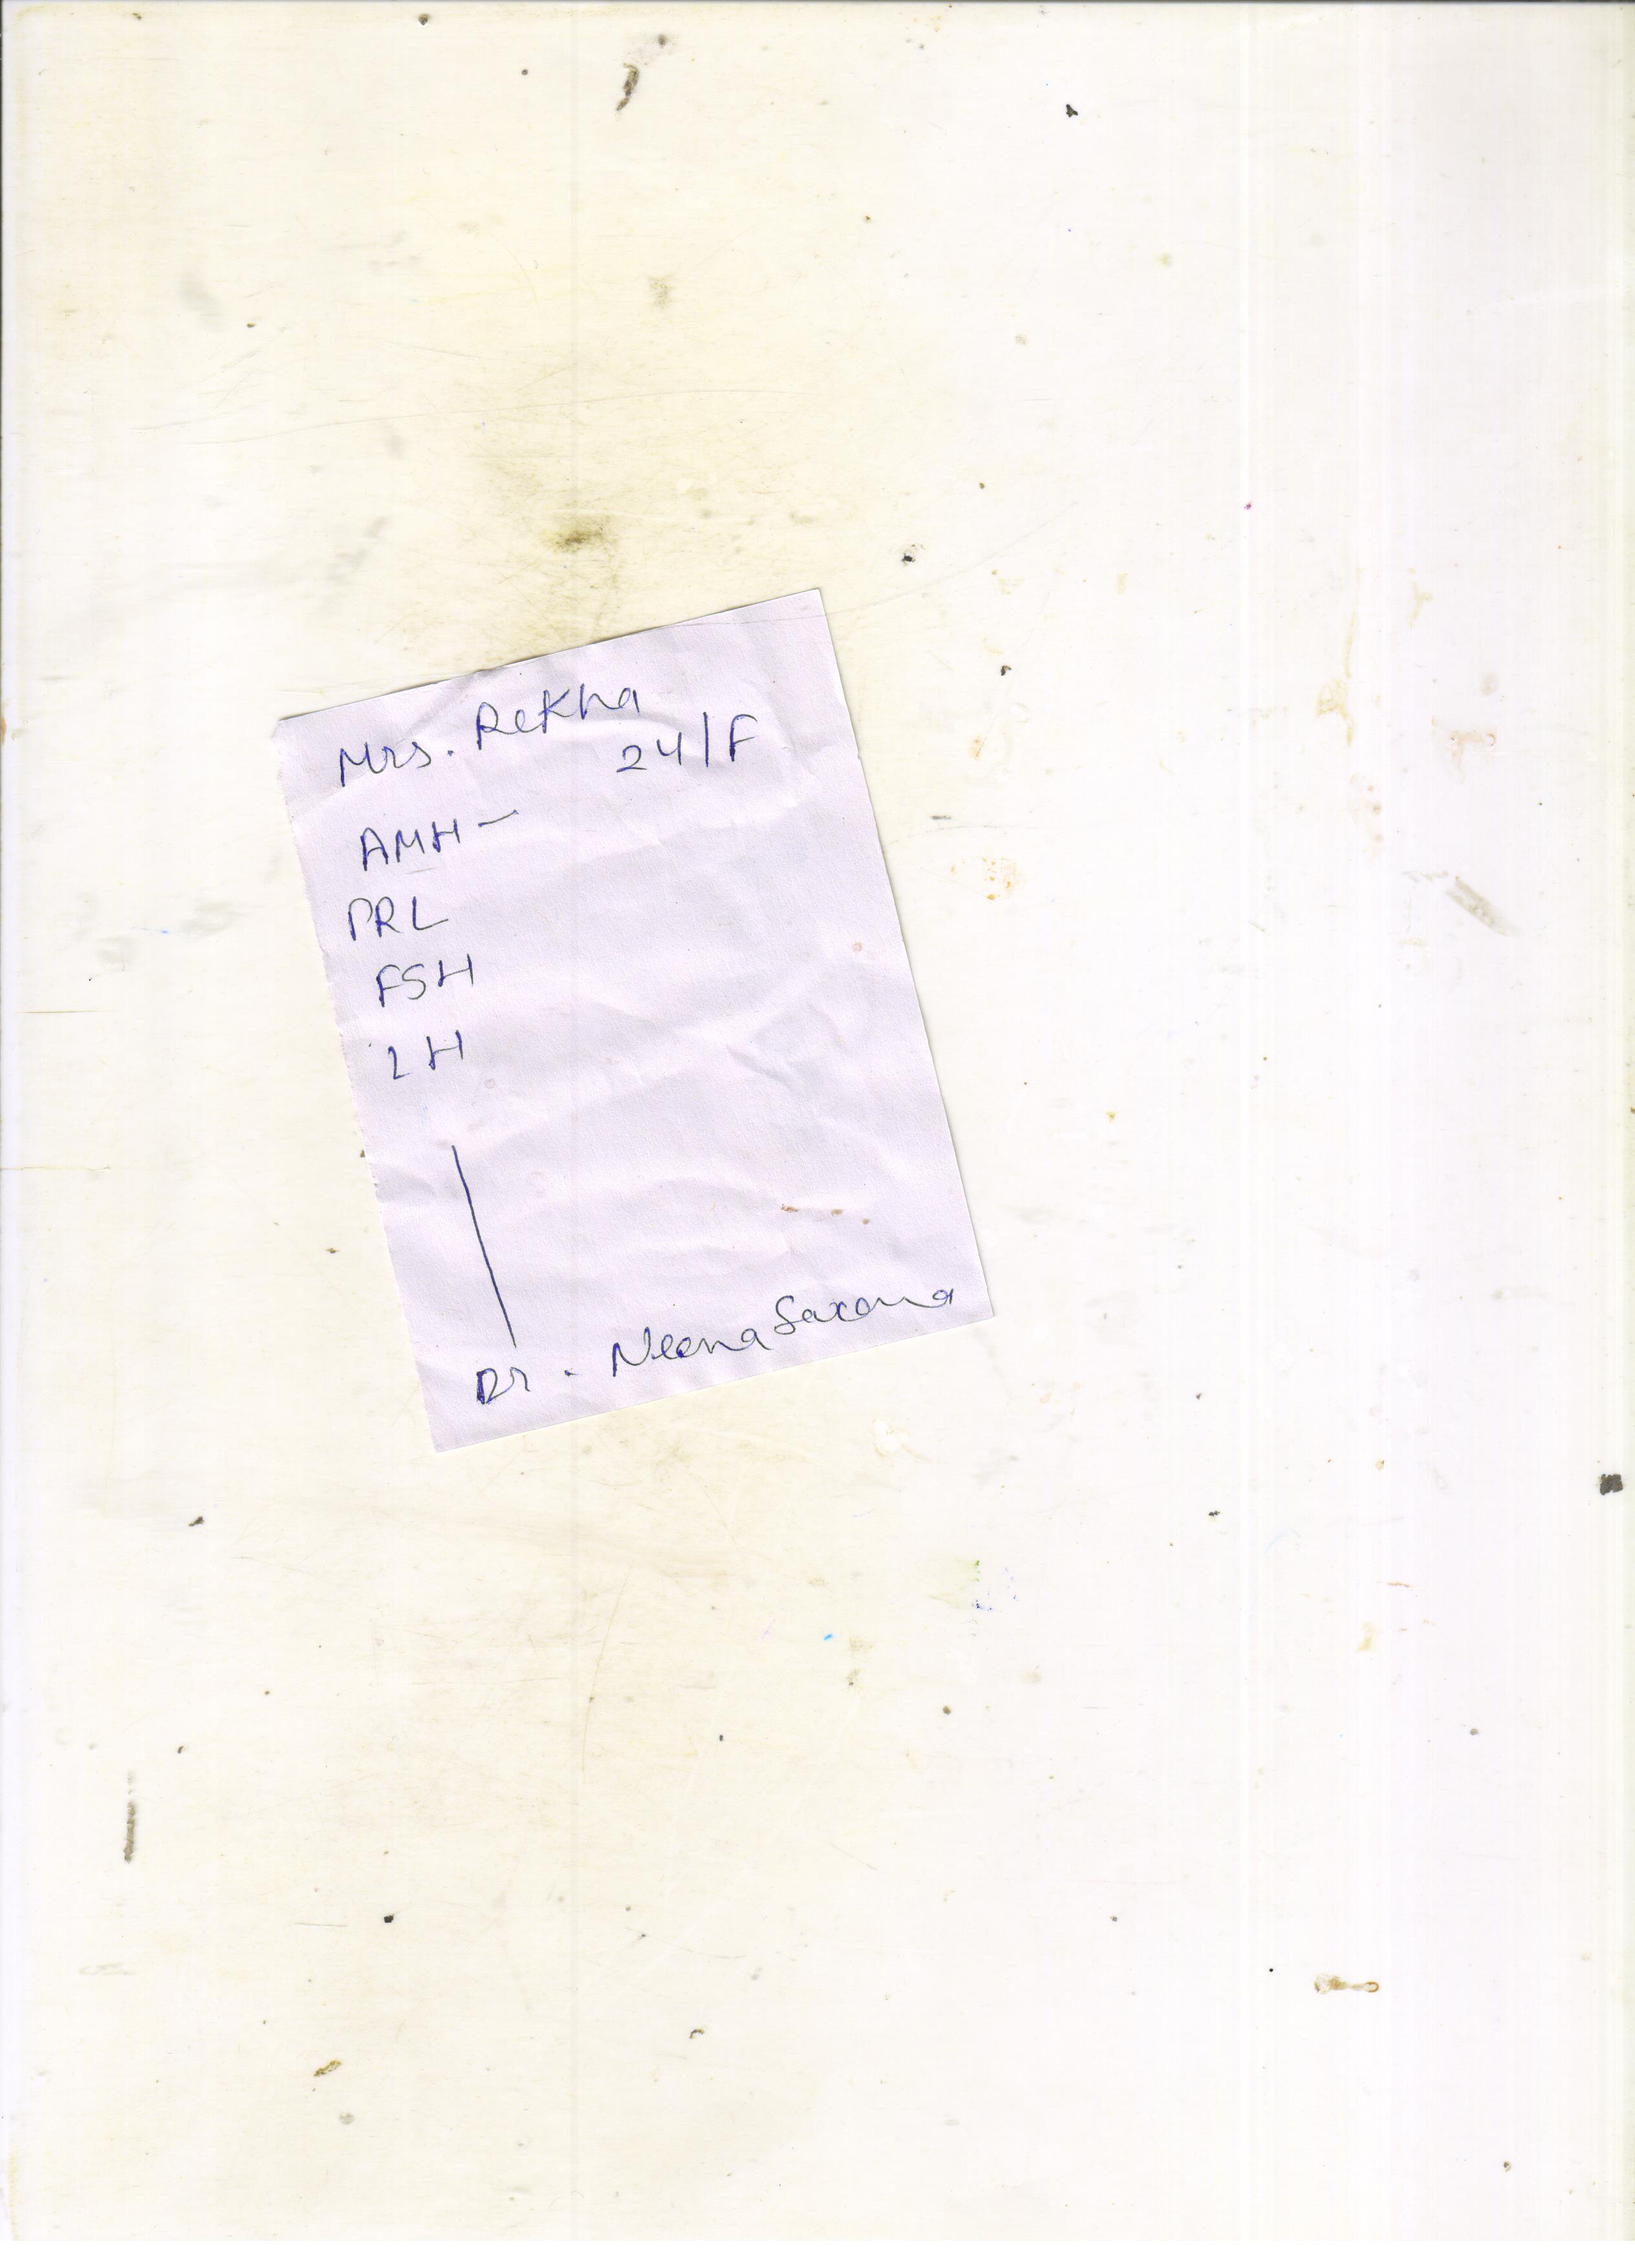 Mrs. Rekha
24/F
AMH -
PRL
FSH
LH
Dr. Neena Saxena